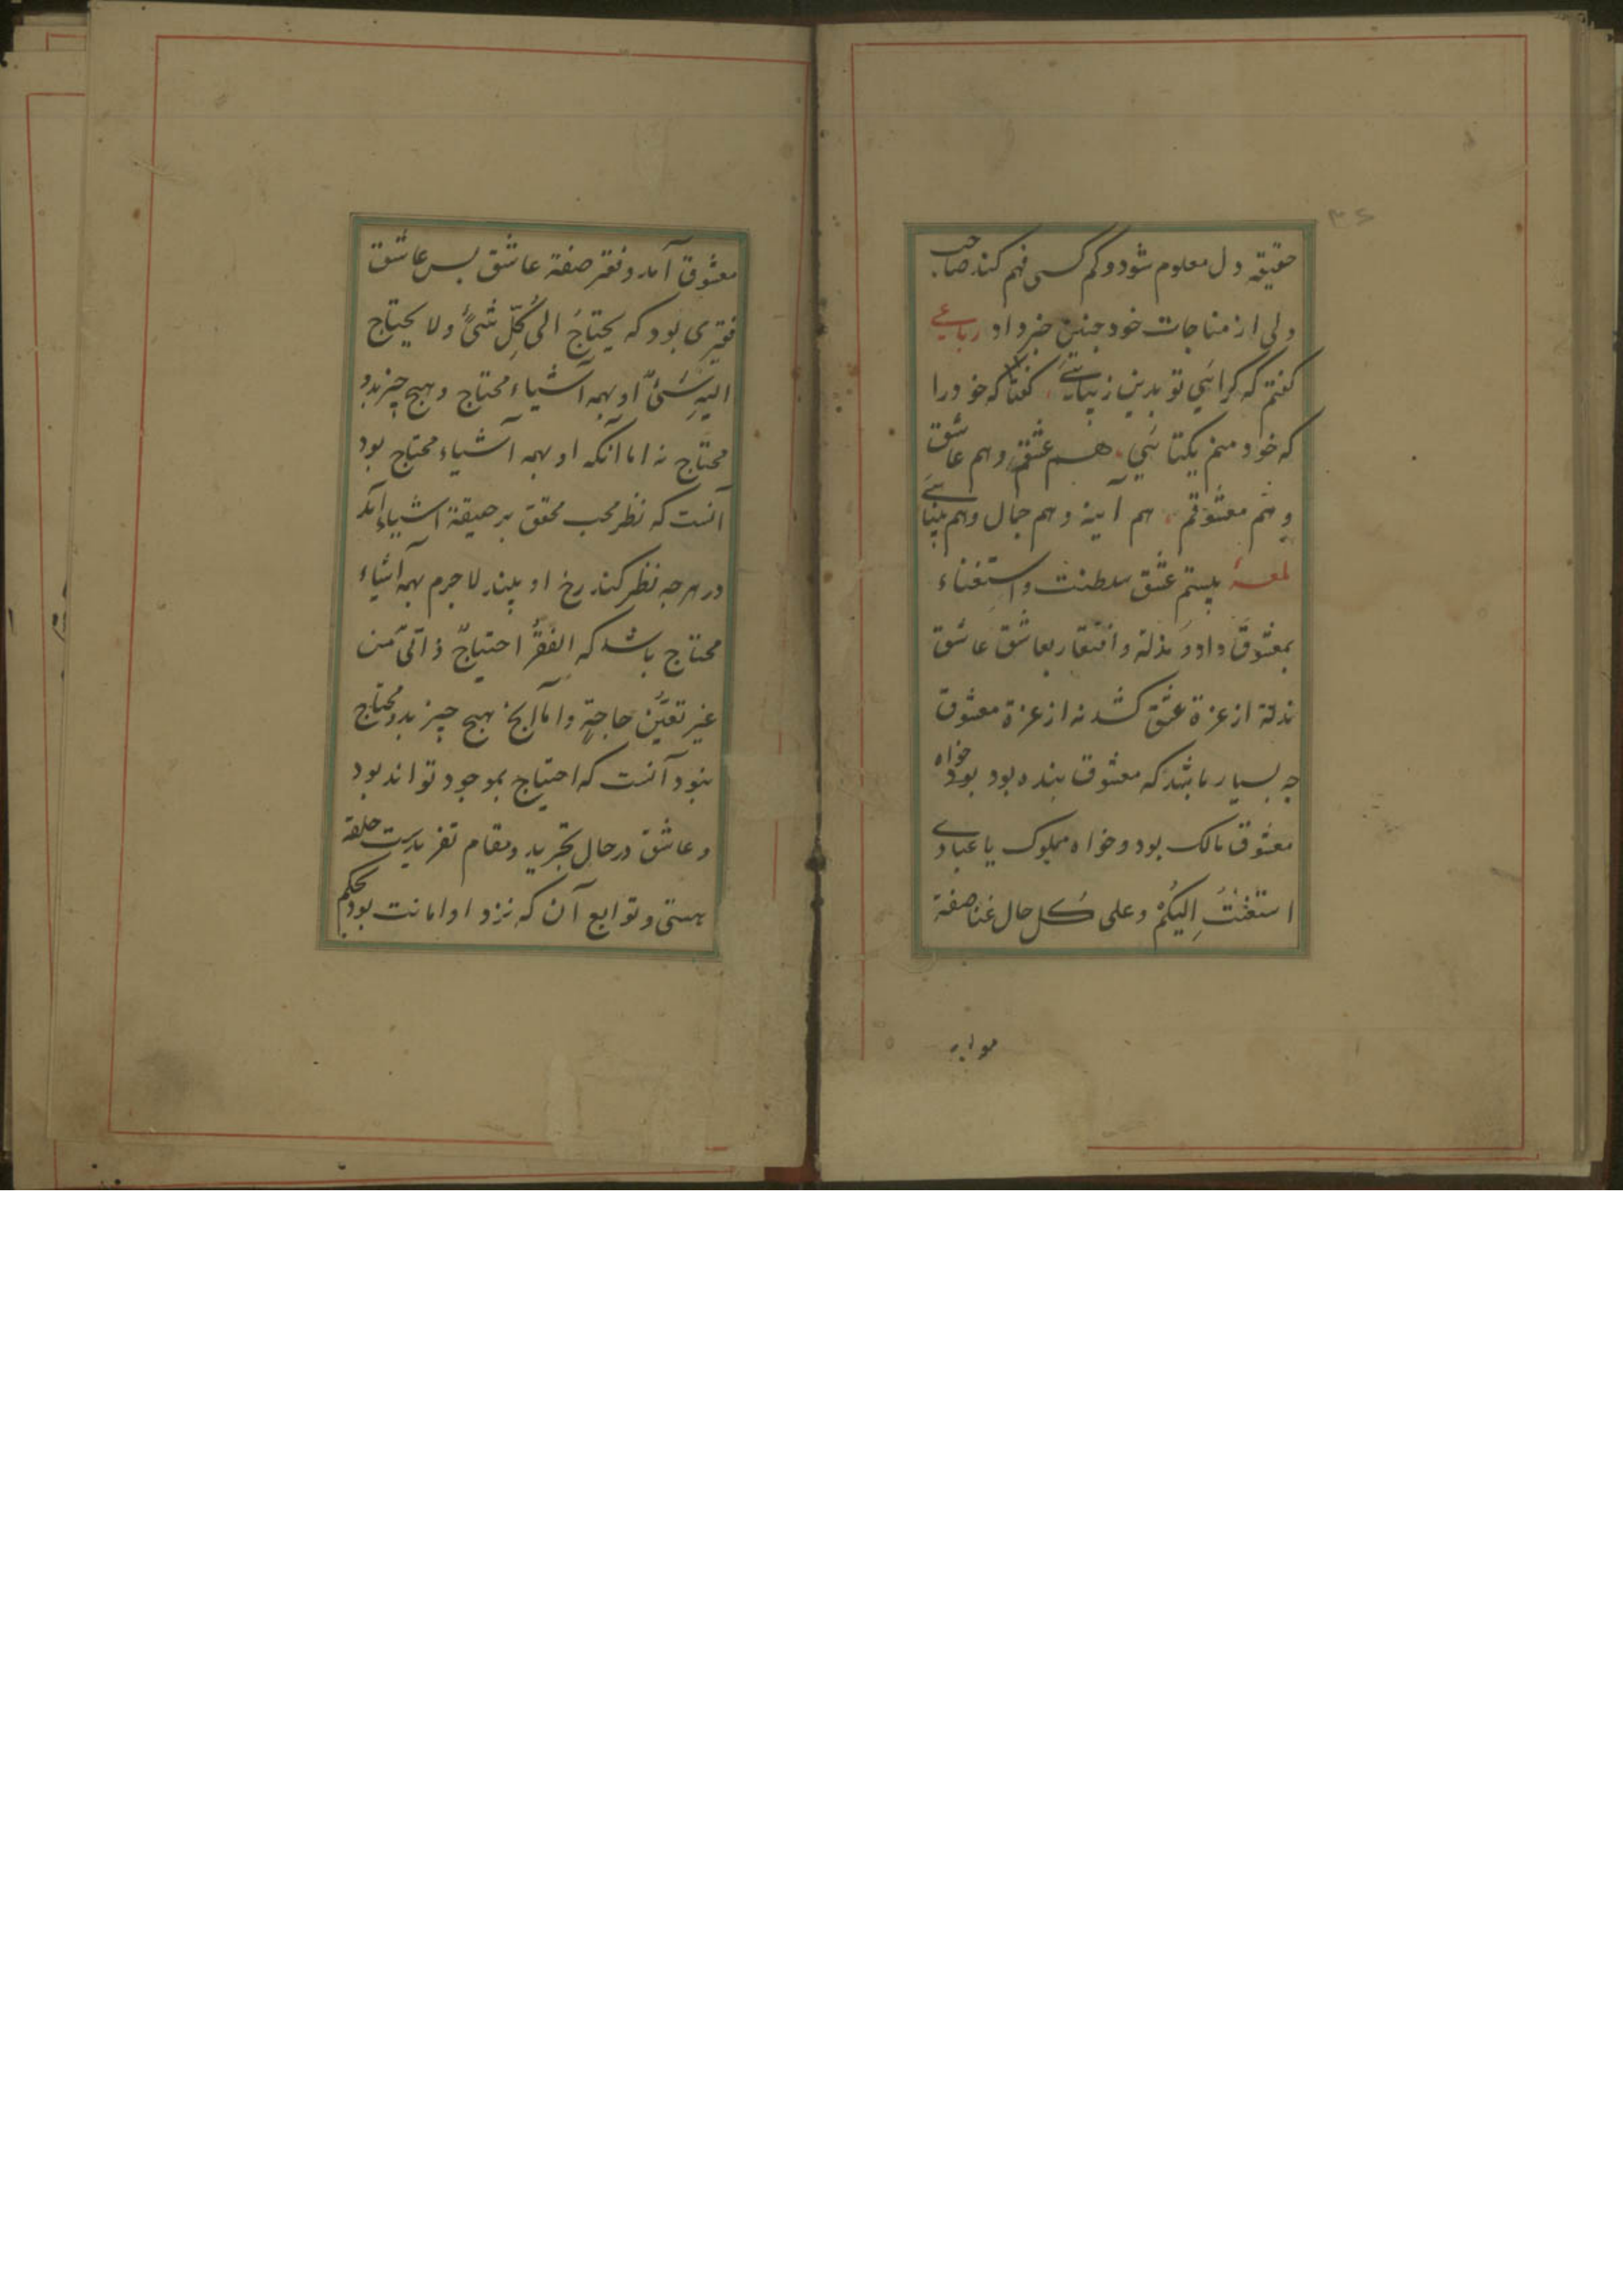 ۳۴
حقیقه دل معلوم شود و کم کسی فهم کند صاحب
دلی از مناجات خود چنین خبر داد رباعی
کفتم که کرائی تو بدین زیبائی کفتا که خود را
که خود منم یکتائی هم عشقم و هم عاشق
و هم معشوقم هم آینه و هم جمال و هم بینائی
لمعۀ بیستم عشق سلطنت و استغناء
بمعشوق داد و مذلة و افتقار بعاشق عاشق
مذلة از عزة عشق کشد نه از عزة معشوق
چه بسیار باشد که معشوق بنده بود بود خواه
معشوق مالک بود و خواه مملوک یا عبادی
استغثتُ اِلیکُم و علی کل حال غنا صفة
معشوق آمد و فقر صفة عاشق بس عاشق
فقیری بود که یحتاجُ الی کُلِّ شیًٔ و لا یحتاج
الیهِ شیًٔ او بهمه اشیاء محتاج و هیچ چیز بدو
محتاج نه اما آنکه او بهمه اشیاء محتاج بود
آنست که نظر محب محقق بر حقیقة اشیاء آمد
در هر چه نظر کند رخ او بیند لاجرم بهمه اشیاء
محتاج باشد که الفقرُ احتیاجٌ ذاتیٌ من
غیر تعیُّن حاجةٍ و اما آنکه هیچ چیز بدو محتاج
نبود آنست که احتیاج بموجود تواند بود
و عاشق در حال تجرید و مقام تفرید حلقه
هستی و توابع آن که نزد او امانت بود بحکم